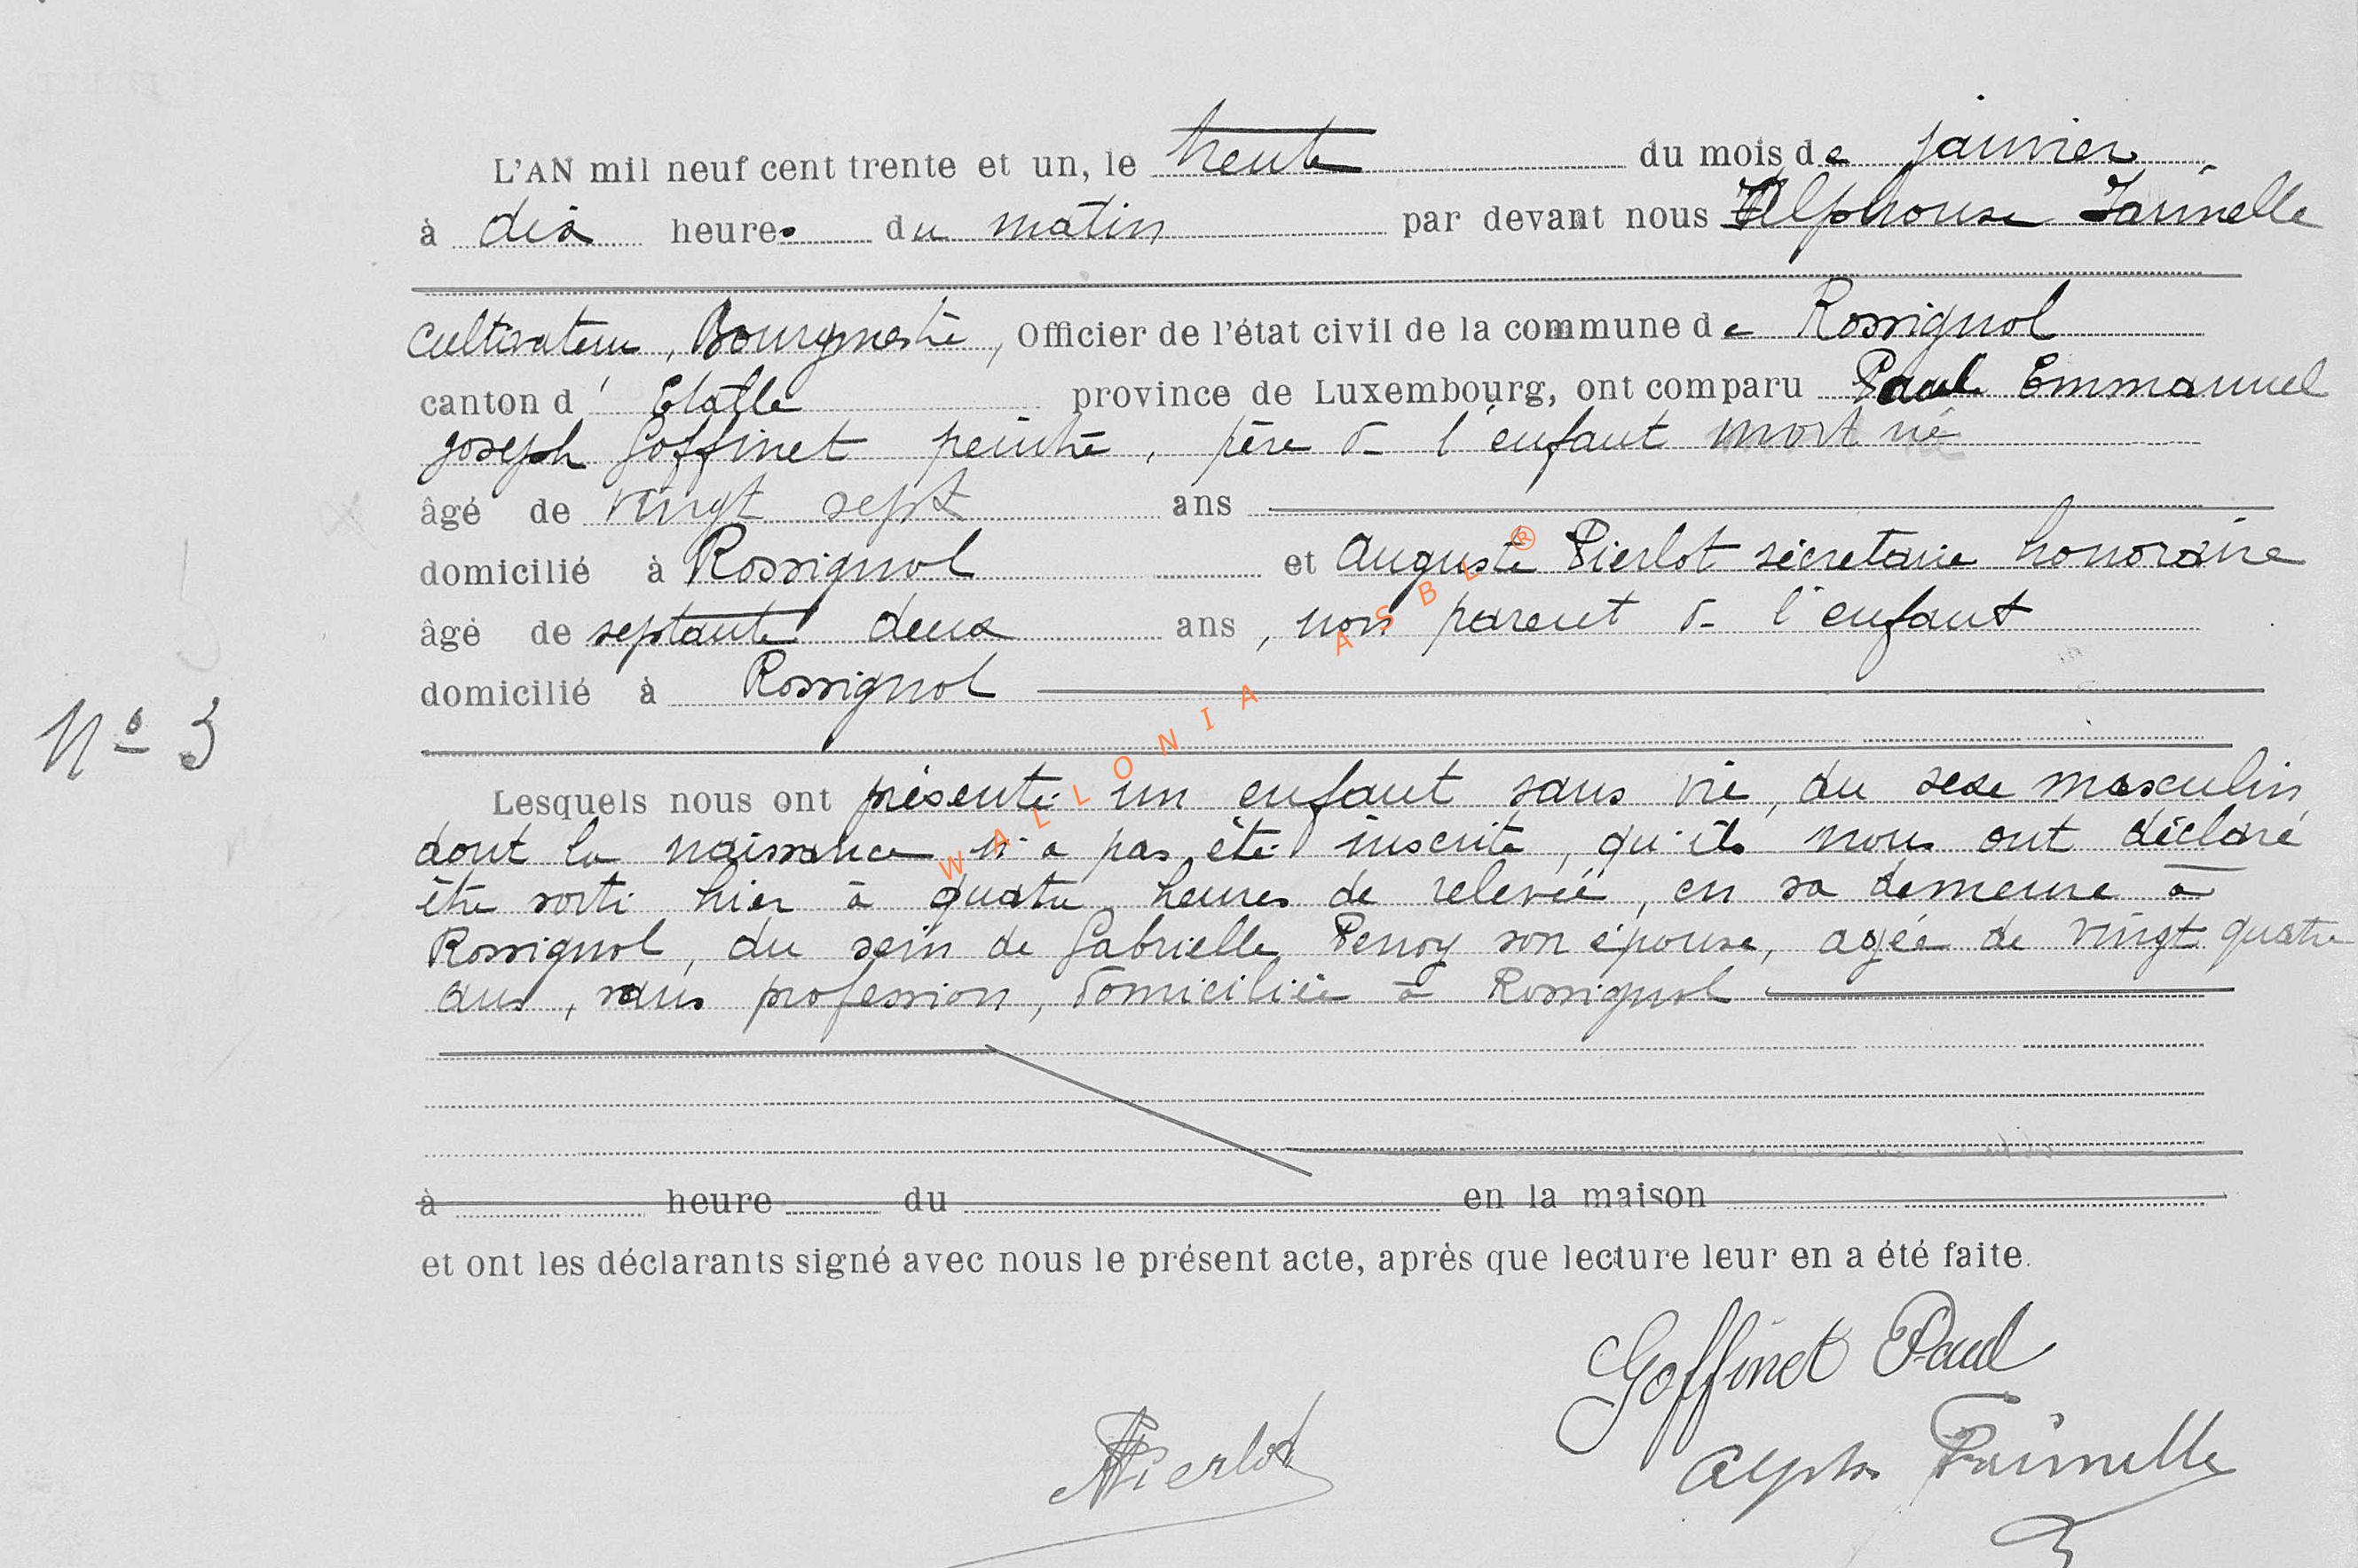 L'AN mil neuf cent trente et un, le trente du mois de janvier
à dix heures du matin par devant nous Alphonse
cultivateur, Bourgmestre, Officier de l'état civil de la commune de Rossignol
canton d' Etalle province de Luxembourg, ont comparu Paul Emmanuel
Joseph Goffinet peintre, père de l'enfant mort né
âgé de vingt sept ans
domicilié à Rossignol et Auguste Pierlot sécretaire honoraire
âgé de septante deux ans, non parent de l'enfant
domicilié à Rossignol
N° 3
Lesquels nous ont présenté un enfant sans vie, du sexe masculin
dont la naissance n'a pas été inscrite, qu'ils nous ont déclaré
être sorti hier à quatre heures de relevée, en sa demeure à
Rossignol, du sein de Gabrielle Penoy son épouse, agée de vingt quatre
ans, sans profession, domiciliée à Rossignol
à heure du en la maison
et ont les déclarants signé avec nous le présent acte, après que lecture leur en a été faite.
Goffinet Paul
Pierlot
Alph
WALLONIA ASBL ®